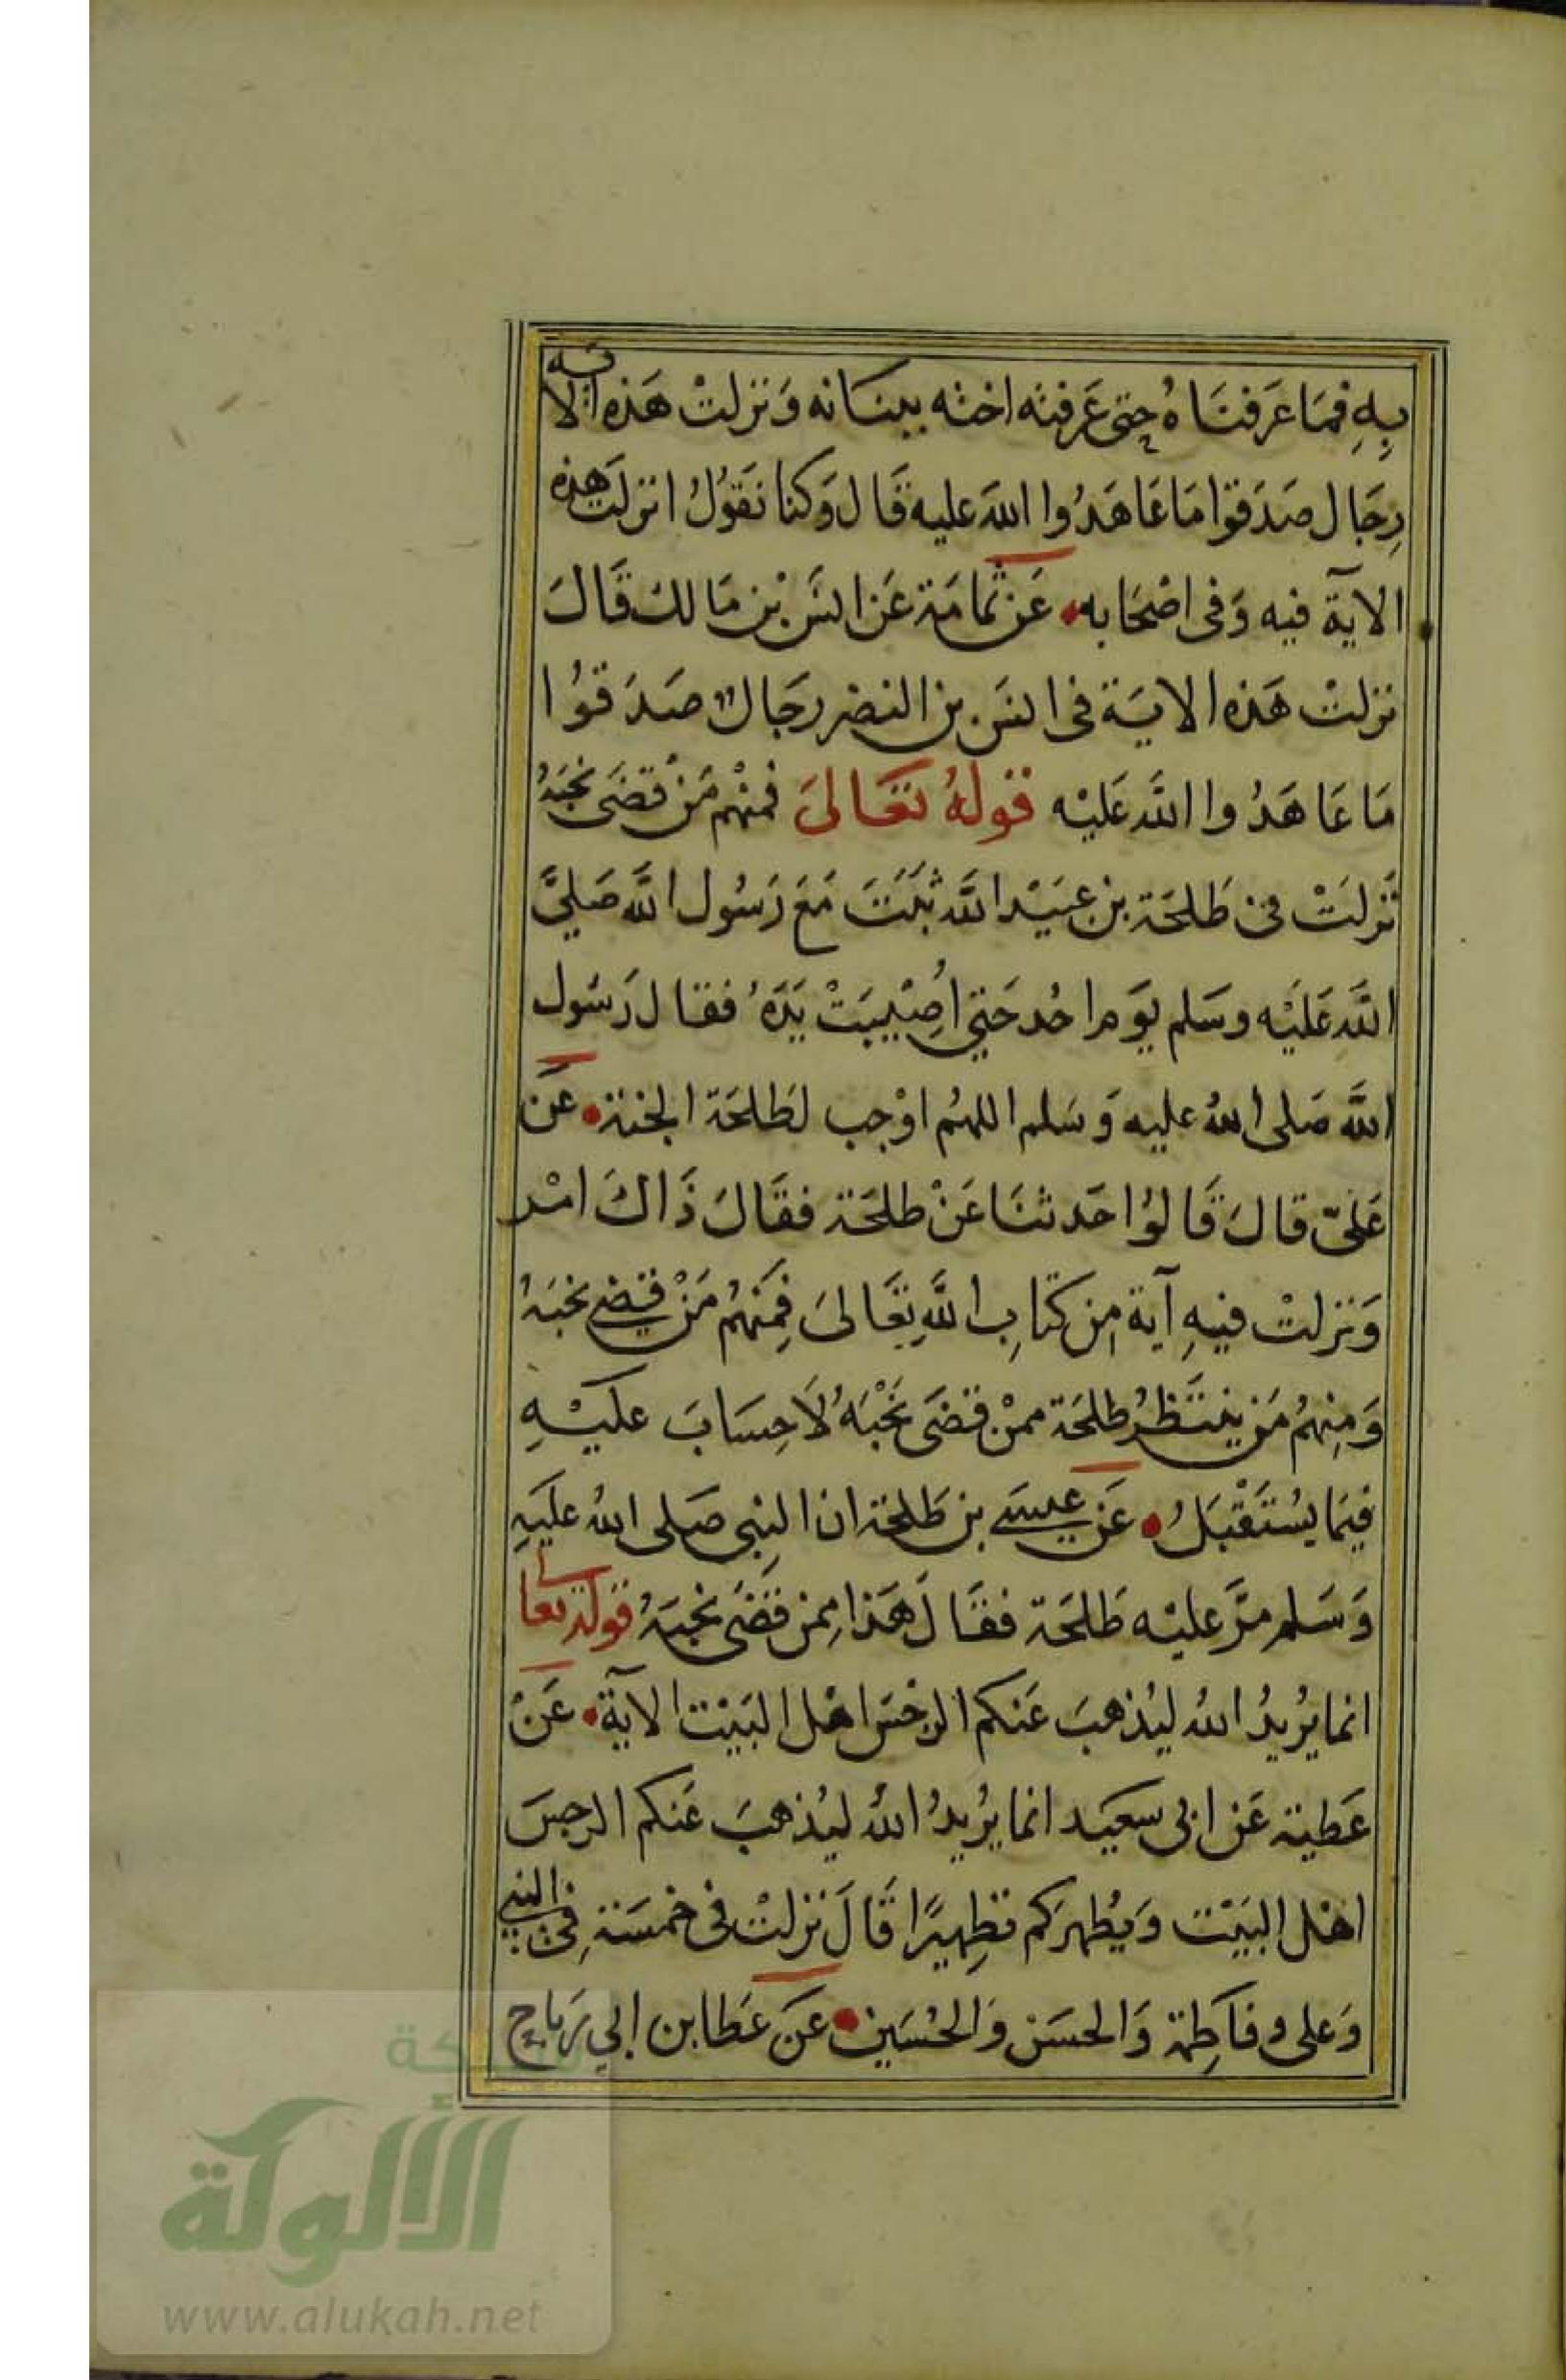 بِهِ فمَا عَرَفنَاهُ حتى عَرفته اخته ببنانه وَنزلتْ هَذه الاية
رِجَال صَدَقوا مَا عَاهَدُوا اللهَ عليه قَال وَكنا نَقوُلُ انزلت هذه
الآية فيه وَفى اصْحَابه عَن ثمامَة عَن انسَ بْن مَالك قَالَ
نزلتْ هَذه الايَة فى انسَ بن النضر رجَالٌ صَدَقوُا
مَا عَاهَدُوا اللَّهَ عَليْه قولهُ تعَالىَ فمنْهم مَنْ قضَى نحْبَهُ
نَزلَتْ فى طَلحَة بن عبَيْد اللَّه ثَبَتَ مَعَ رَسُول اللَّه صَليَّ
اللَّهَ عَلَيْه وسَلم يَوَم احُد حَتي اُصِيْبَتْ يَدَهُ فقال رَسُول
اللَّه صَلى اللهُ عليه وَسَلم اللهُم اوْجب لطَلحَة الجنة عَن
عَلىّ قالَ قَالوُا حَدثنَا عَنْ طلحَة فقَالَ ذَاكَ امْر
وَنزلتْ فيهِ آية مِن كتَابِ اللَّهِ تعَالىَ فِمَنهُم مَنْ قضي نحبَهُ
وَمِنهُم مَن ينتَظرُ طلحَة ممنْ قضَى نَحْبَهُ لاَ حِسَابَ عليْهِ
فيَما يسُتَقْبَلُ عَن عيسَى بن طَلحَة ان النبِى صَلى اللهُ علَيَهِ
وَسَلم مرَّ عليْه طَلحَة فقَال هَذا مِمن قضَى نحْبَهُ قولهُ تعالى
انما يرُيدُ اللهُ ليُذهبَ عَنكم الرجْسَ اهْل البَيْت الآية عَنْ
عَطية عَن ابى سعَيد انما يرُيدُ اللهُ ليُذهبَ عَنكم الرجسَ
اهْل البَيْت وَيُطهرَكم تطِهيرًا قَالَ نزلتْ فى خمسَة فِى النبي
وَعلى وفاَطِمَة وَالحسَن وَالحُسَين عَنَ عَطا بن ابي رَباح
شبكة
الألوكة
www.alukah.net